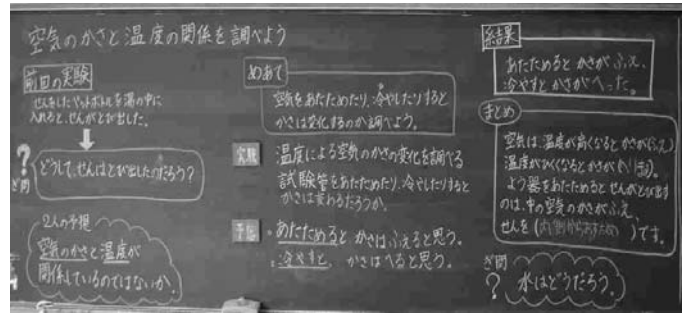 空気のかさと温度の関係を調べよう
前回の実験
せんをしたペットボトルを湯の中に
入れると、せんがとび出した。
?
ぎ問
どうして、せんはとび出したのだろう?
2人の予想
空気のかさと温度が
関係しているのではないか。
めあて
空気をあたためたり、冷やしたりすると
かさは変化するのか調べよう。
実験
温度による空気のかさの変化を調べる
試験管をあたためたり、冷やしたりすると
かさは変わるだろうか。
予想
・あたためると かさはふえると思う。
・冷やすと、かさはへると思う。
結果
あたためるとかさがふえ、
冷やすとかさがへった。
まとめ
空気は、温度が高くなるとかさが(ふえ)
温度が低くなるとかさが(へる)。
よう器をあたためるとせんがとび出す
のは、中の空気のかさがふえ、
せんを(内側からおすため)です。
ぎ問
?
水はどうだろう。